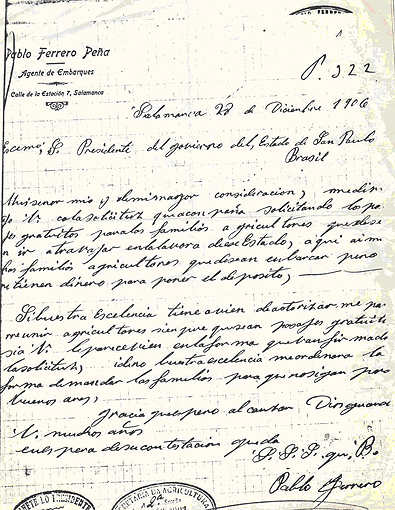 P. 322
Pablo Ferrero Peña
Agente de Embarques
Calle de la Estación 7, Salamanca
Salamanca 28 de Diciembre 1906
Escmo, S. Presidente del gobierno del, Estado de San Paulo
Brasil
Muisenor mio y demimayor consideracion, mediri
jo V. cola solicitut, que acompeña solicitando los pa
jes gratuitos para los familias a gricultores que dese
n ir atrabajar enlalavora deese Estado, a qui aimu
chos familios agricultores que desean embarcar pero
ne tienen dinero para poner el deposito,
Sibuestra Escelencia tiene avien deautorizar me pa
reunir agricultores sienpre que sean posajes gratuitos
sia V. leparece vien enlaforma queban firmado
lasolicitut, idene buestra escelencia meordenera la
forma demandar los familios para que nosigan para
buenos aires,
Gracia que espero al canzar Dios guarde
V. muchos años
enespera desu contestacion queda
S. S. S. qui, B.
Pablo Ferrero
NETE DO PRESIDENTE
SECRETARIA DA AGRICULTURA
2ª